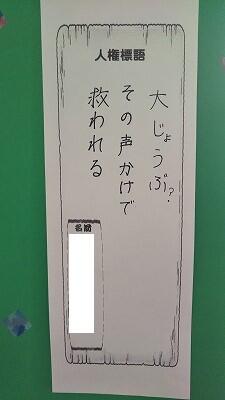 人権標語
大じょうぶ?
その声かけで
救われる
名前